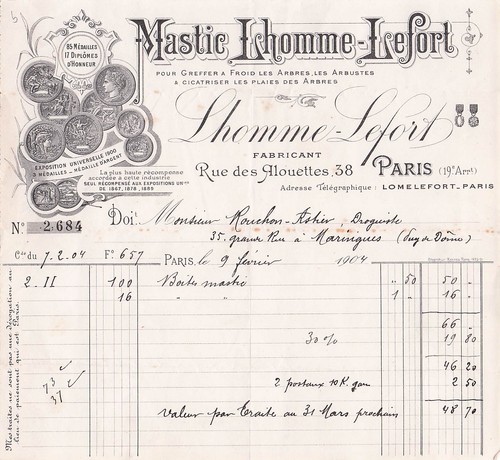 85 MÉDAILLES
17 DIPLÔMES
D'HONNEUR
Mastic Lhomme-Lefort
POUR GREFFER A FROID LES ARBRES, LES ARBUSTES
& CICATRISER LES PLAIES DES ARBRES
Lhomme-Lefort
FABRICANT
Rue des Alouettes, 38 PARIS (19e Arrt)
Adresse Télégraphique : LOMELEFORT_PARIS
EXPOSITION UNIVERSELLE 1900
3 MÉDAILLES _ MÉDAILLE D'ARGENT
La plus haute récompense
accordée à cette industrie
SEUL RÉCOMPENSÉ AUX EXPOSITIONS UNles
DE 1867, 1878, 1889
No 2.684
Doit Monsieur Rouchon-Astier Droguiste
35. grande Rue à Maringues (Puy de Dôme)
Cde du 7.2.04 Fo 657 PARIS, le 9 février 1904
2.II 100 Boîtes mastic " 50 50 -
16 " " 1 " 16 -
66 -
30% 19 80
46 20
2 postaux 10K gare 2 50
Valeur par Traite au 31 Mars prochain 48 70
73
37
Mes traites ne sont pas une dérogation au
lieu de paiement qui est Paris.